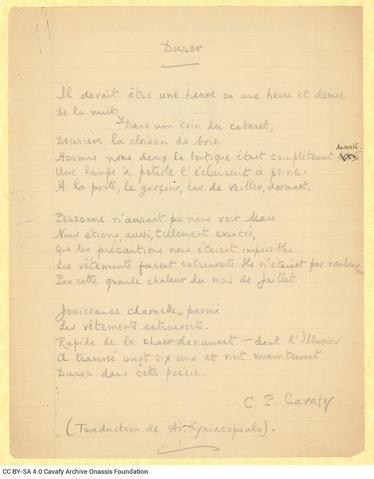 Durer
Il devait être une heure ou une heure et demie
De la nuit,
Dans un coin du cabaret,
Derrière la cloison de bois.
Hormis nous deux la boutique était complètement déserte
Une lampe à pétrole l'éclairait à peine.
À la porte, le garçon, las de veiller, dormait.
Personne n'aurait pu nous voir. Mais
Nous étions, aussi, tellement excités,
Que les précautions nous étaient impossibles
Les vêtements furent entrouverts. Ils n'étaient pas nombreux
Par cette grande chaleur du mois de Juillet.
Jouissance charnelle, parmi
Les vêtements entrouverts.
Rapide de la chair dénument — dont l'Illusion
A traversé vingt six ans et vint maintenant
Durer dans cette poésie.
C. P. Cavafy
(Traduction de At. Kyriacopoulo).
CC BY-SA 4.0 Cavafy Archive Onassis Foundation